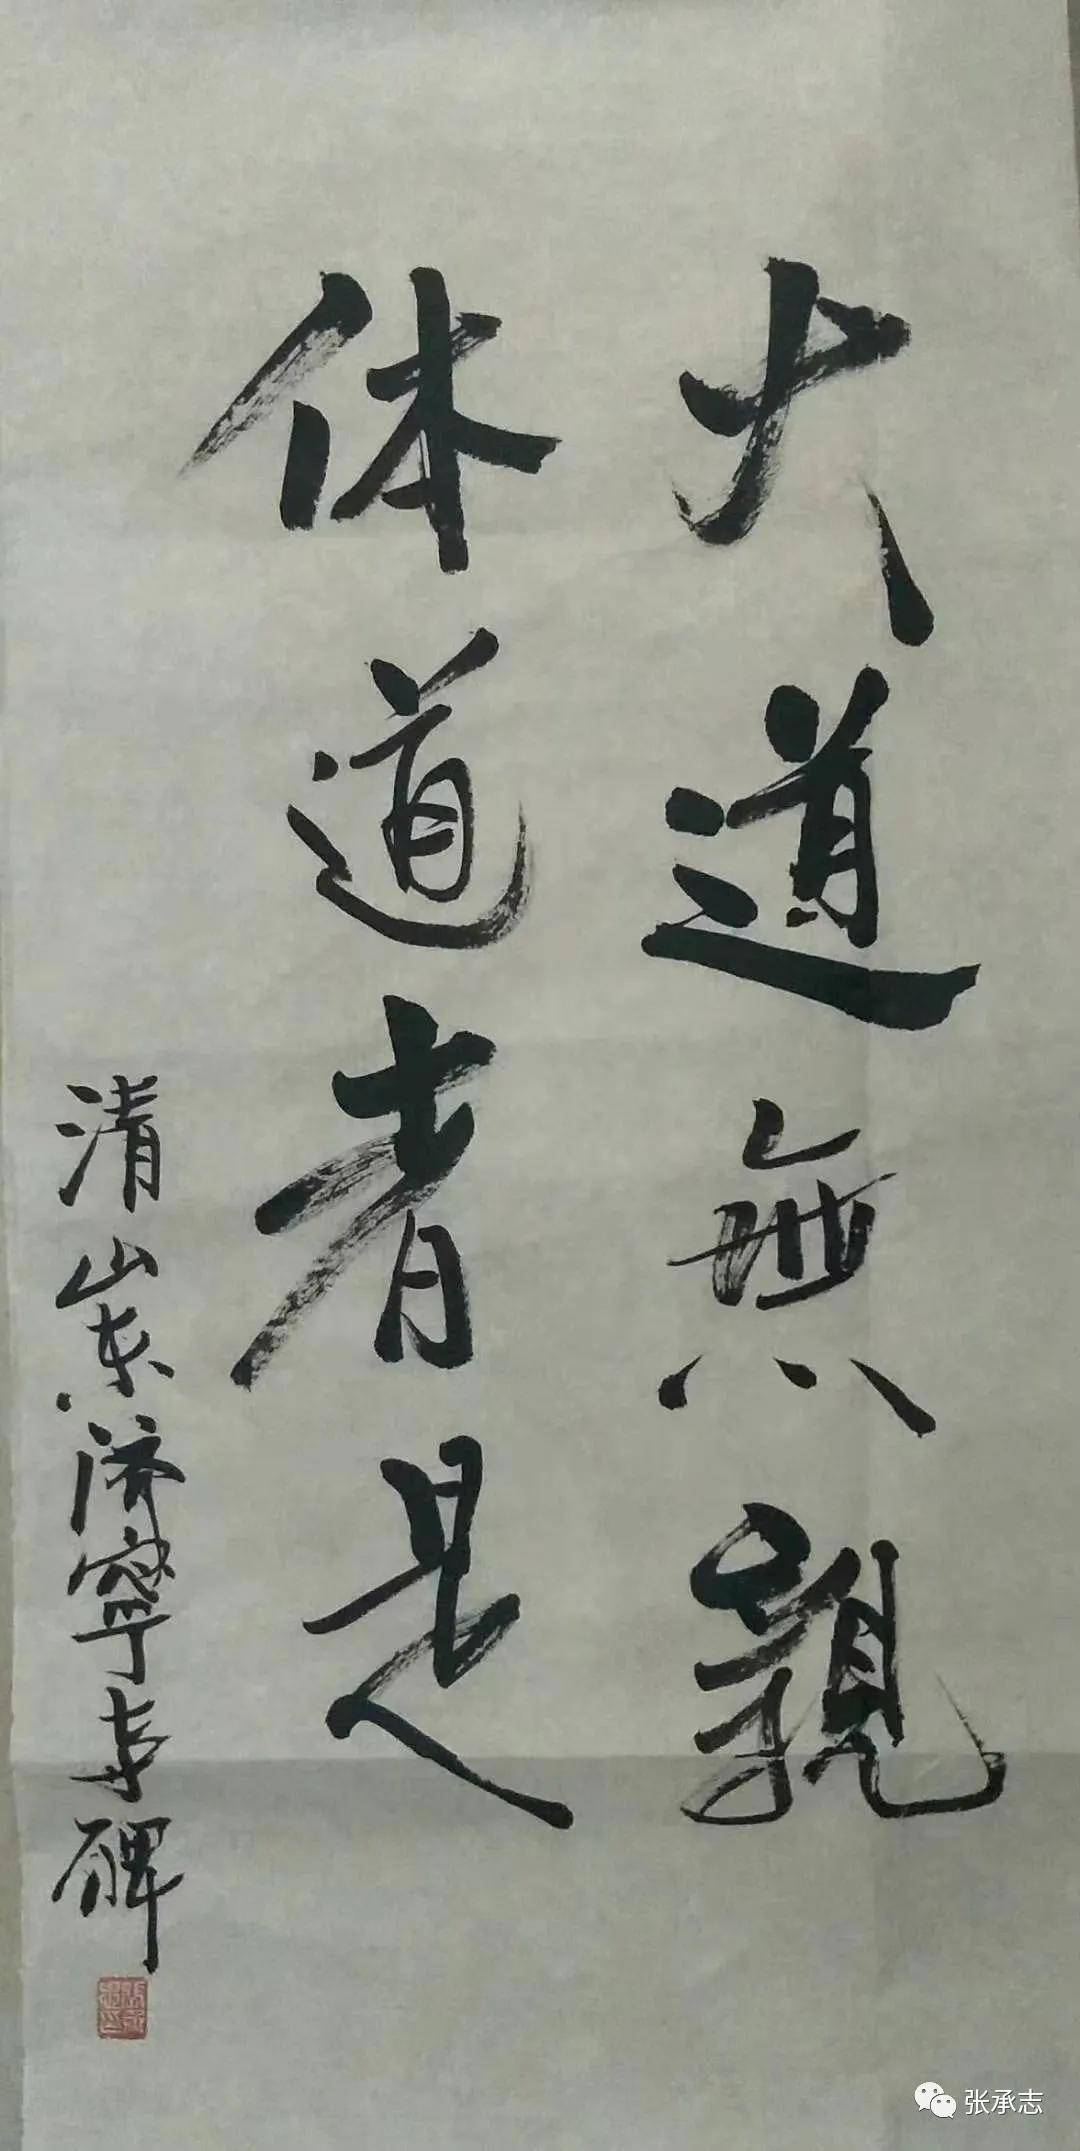 大道無親
体道者是
清山东济寧古碑
张承志